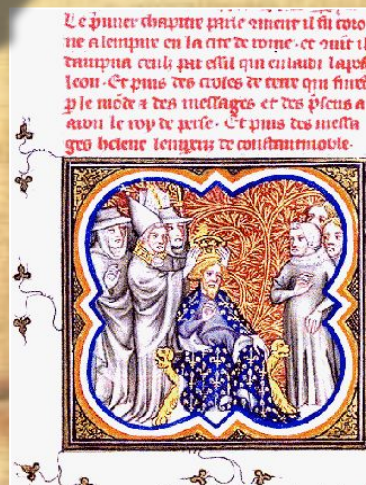 Le primer chapitre parle ꝯment il fu coro
ne a lempire en la cite de rome · et ꝯmt il
dampna ceulx par essil qui
leon · Et puis des croles de terre qui
p le mōde ⁊ des messages et des p̄sens a
le roy de perse · Et puis des messa
ges helene de constantinoble ·